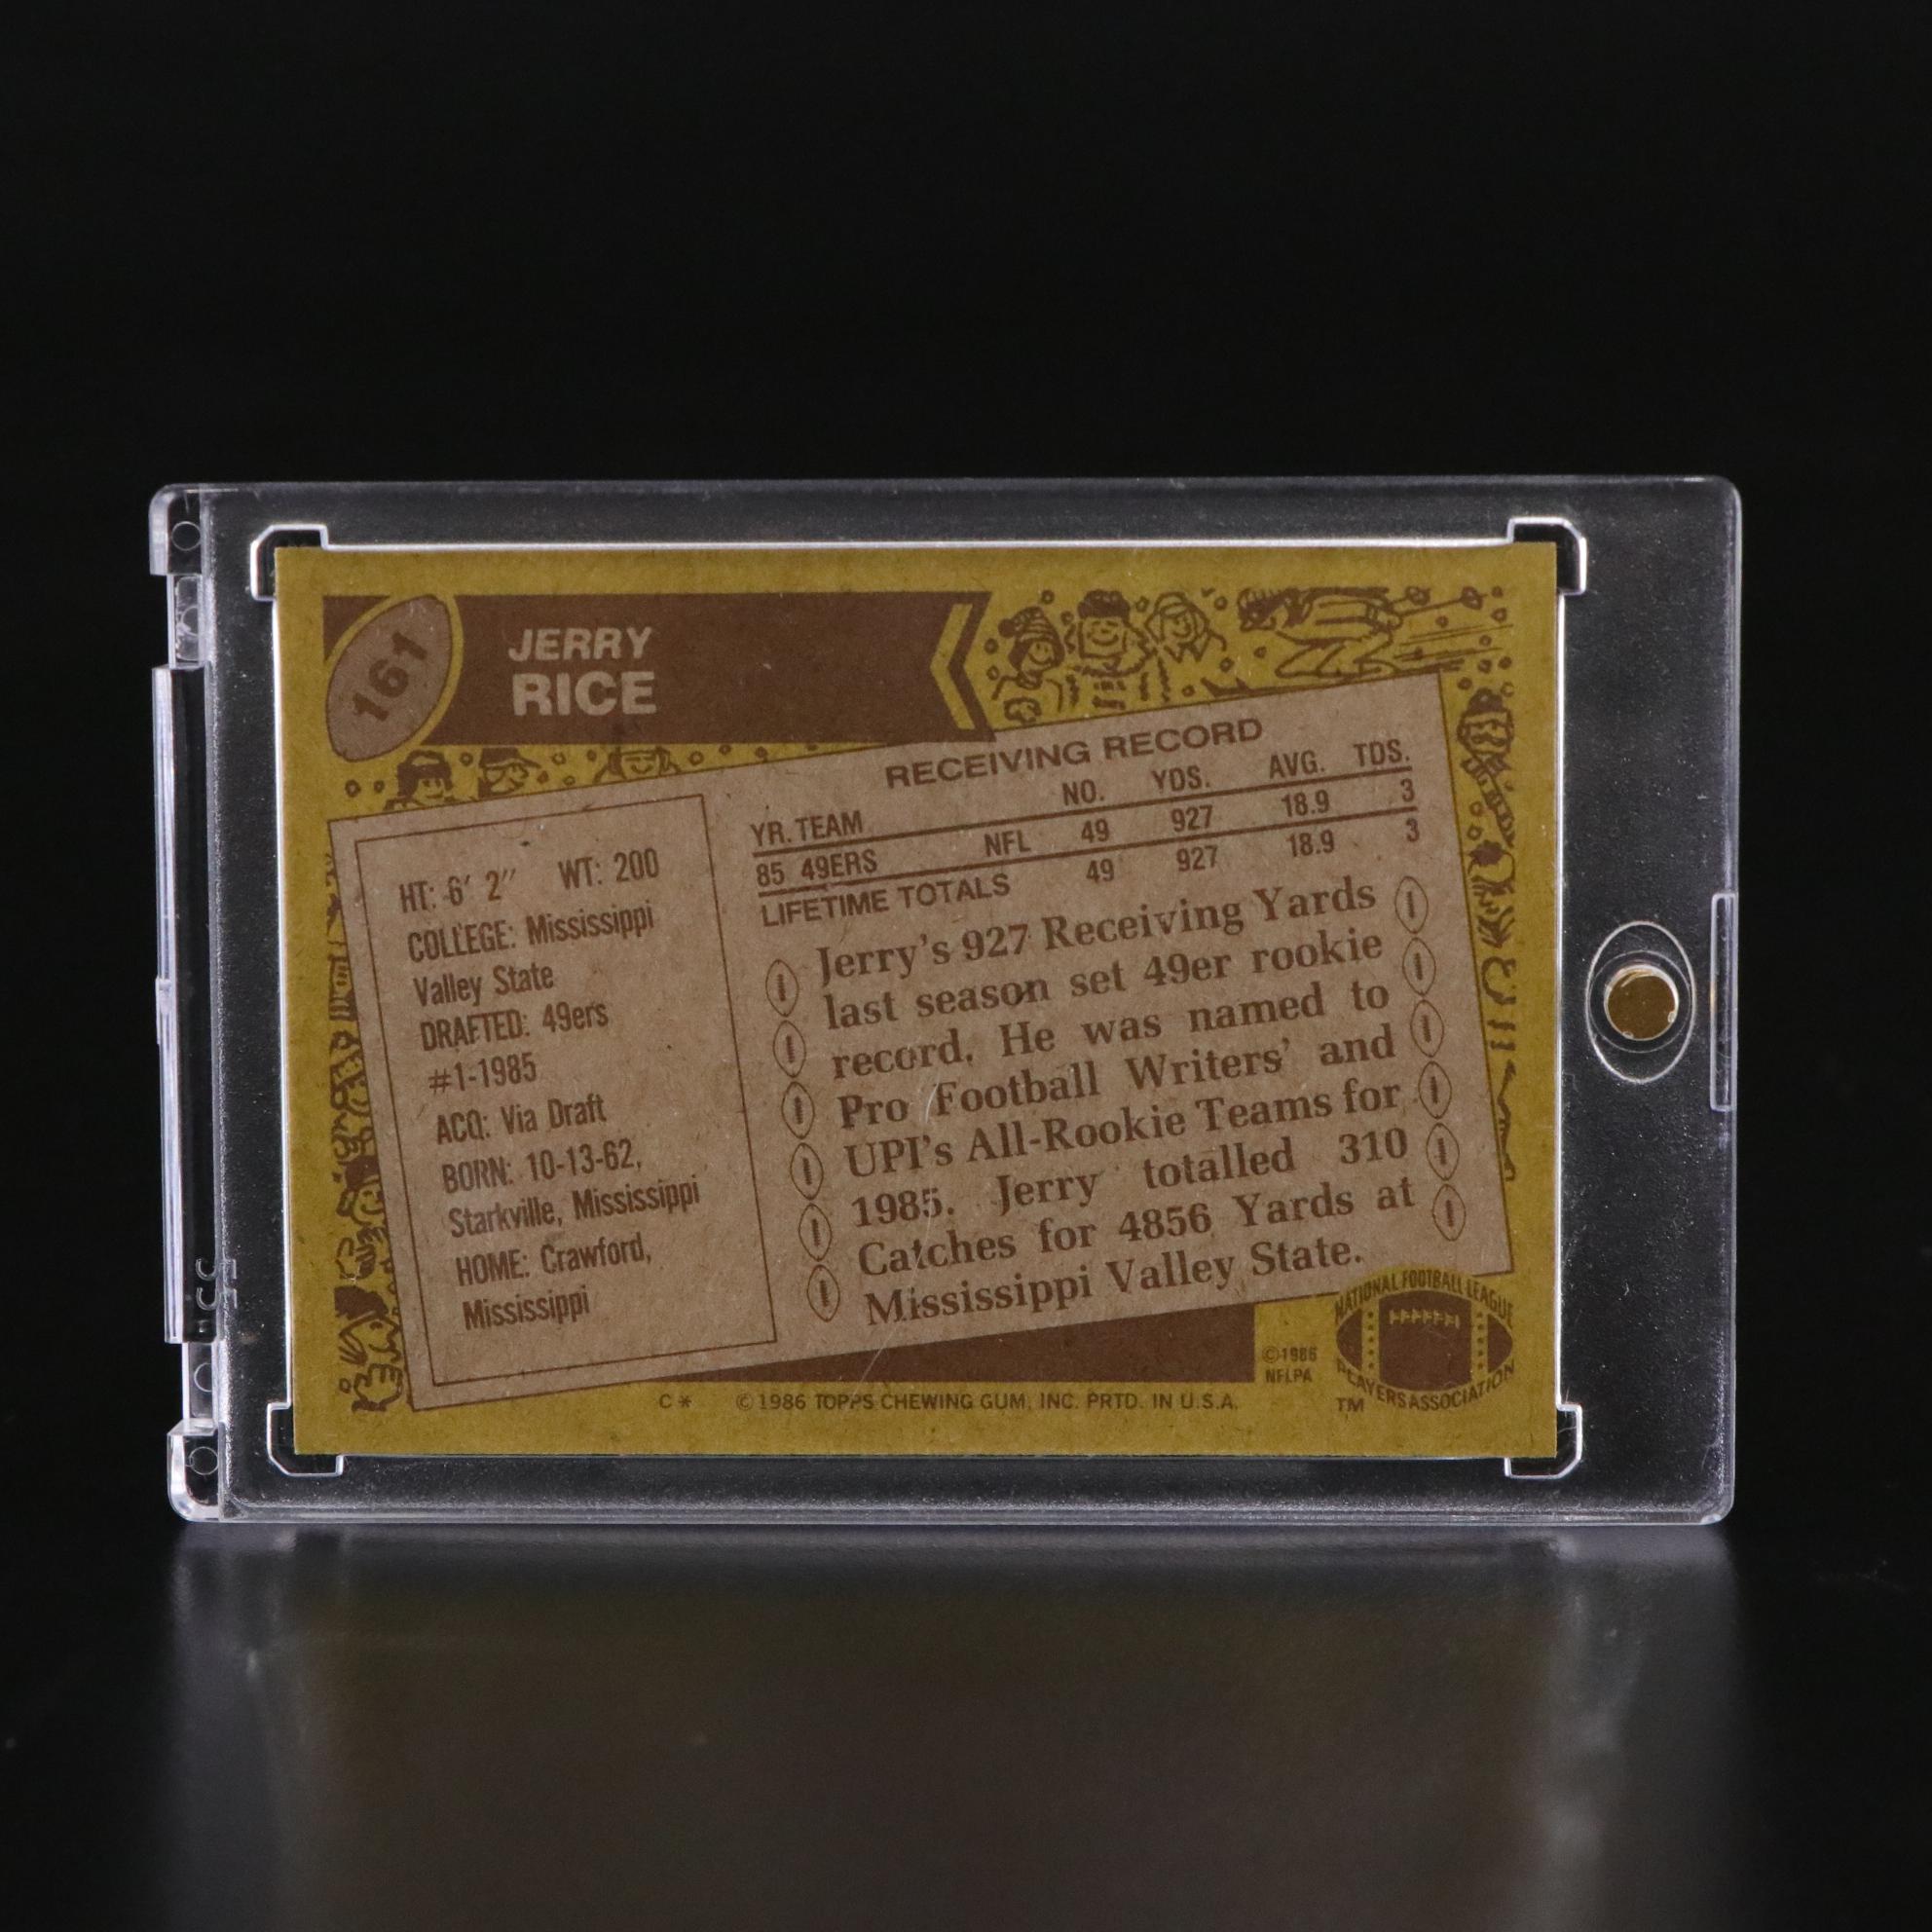 161
JERRY
RICE
RECEIVING RECORD
YR. TEAM NO. YDS. AVG. TDS.
85 49ERS NFL 49 927 18.9 3
LIFETIME TOTALS 49 927 18.9 3
HT: 6' 2" WT: 200
COLLEGE: Mississippi
Valley State
DRAFTED: 49ers
#1-1985
ACQ: Via Draft
BORN: 10-13-62,
Starkville, Mississippi
HOME: Crawford,
Mississippi
Jerry's 927 Receiving Yards
last season set 49er rookie
record. He was named to
Pro Football Writers' and
UPI's All-Rookie Teams for
1985. Jerry totalled 310
Catches for 4856 Yards at
Mississippi Valley State.
©1986
NFLPA
NATIONAL FOOTBALL LEAGUE
PLAYERS ASSOCIATION
TM
C* ©1986 TOPPS CHEWING GUM, INC. PRTD. IN U.S.A.